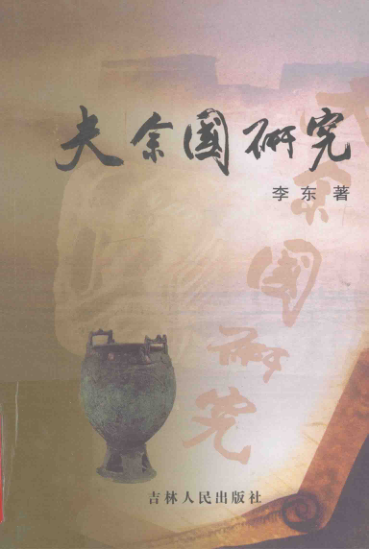 夫余國研究
李东 著
余
國
研
究
吉林人民出版社